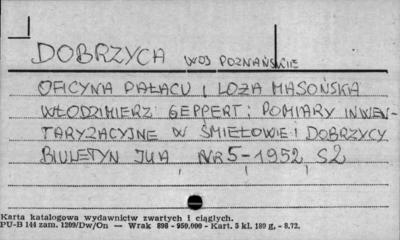 DOBRZYCA WOJ POZNAŃSKIE
OFICYNA PAŁACU I LOŻA MASOŃSKA
WŁODZIMIERZ GEPPERT: POMIARY INWEN-
TARYZACYJNE W ŚMIEŁOWIE I DOBRZYCY
BIULETYN IUA NR 5-1952 S2
Karta katalogowa wydawnictw zwartych i ciągłych.
PU-B 144 zam. 1209/Dw/On — Wrak 898 - 950.000 - Kart. 5 kl. 180 g. - 8.72.